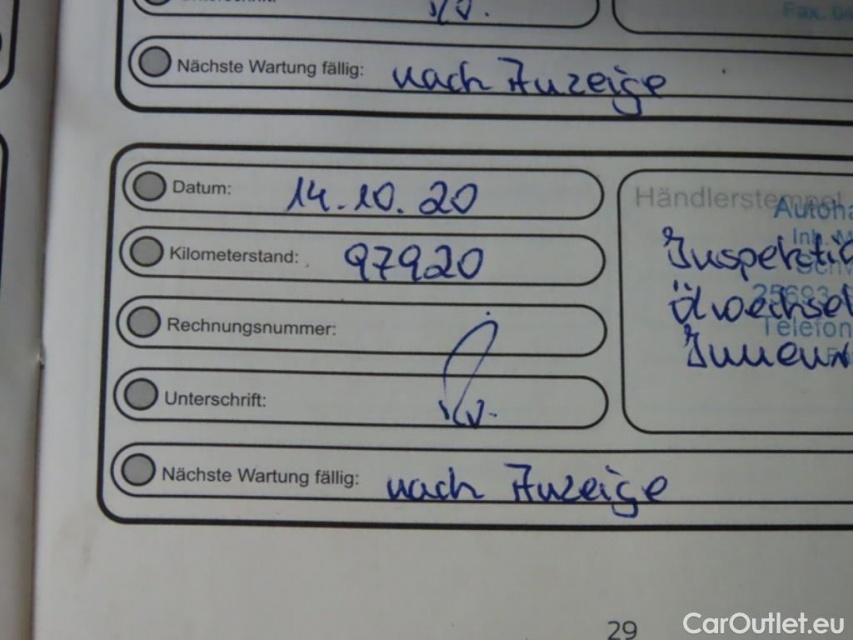 Fax. 04
Nächste Wartung fällig: nach Anzeige
Datum: 14.10.20
Kilometerstand: 97920
Rechnungsnummer:
Unterschrift:
Nächste Wartung fällig: nach Anzeige
Händlerstempel
Autoha
Inh. M
Inspektio
25693
Ölwechsel
Telefon
29
CarOutlet.eu